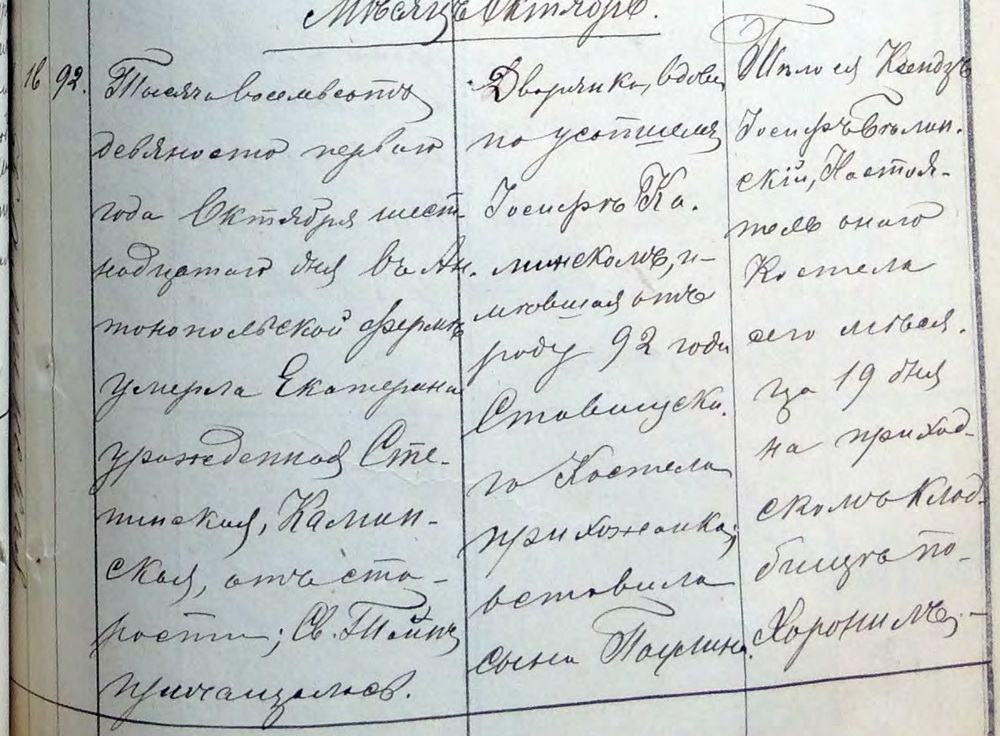 Мѣсяцъ Октябрь.
18 92.
Тысяча восемьсотъ
девяносто перваго
года Октября шест-
надцатаго дня въ Ан-
тонопольской фермѣ
умерла Екатерина
урожденная Сте-
пинская, Камин-
ская, отъ ста-
рости; Св. Тайнъ
причащалась.
Дворянка, вдова
по усопшемъ
Іосифѣ Ка-
минскомъ, и-
мѣвшая отъ
роду 92 года
Ставилуска-
го Костела
прихожанка;
оставила
сына Паулина.
Тѣло ея Ксендзъ
Іосифъ Бѣлин-
скій, Настоя-
тель онаго
Костела
сего мѣся-
ца 19 дня
на приход-
скомъ клад-
бищѣ по-
хоронилъ.